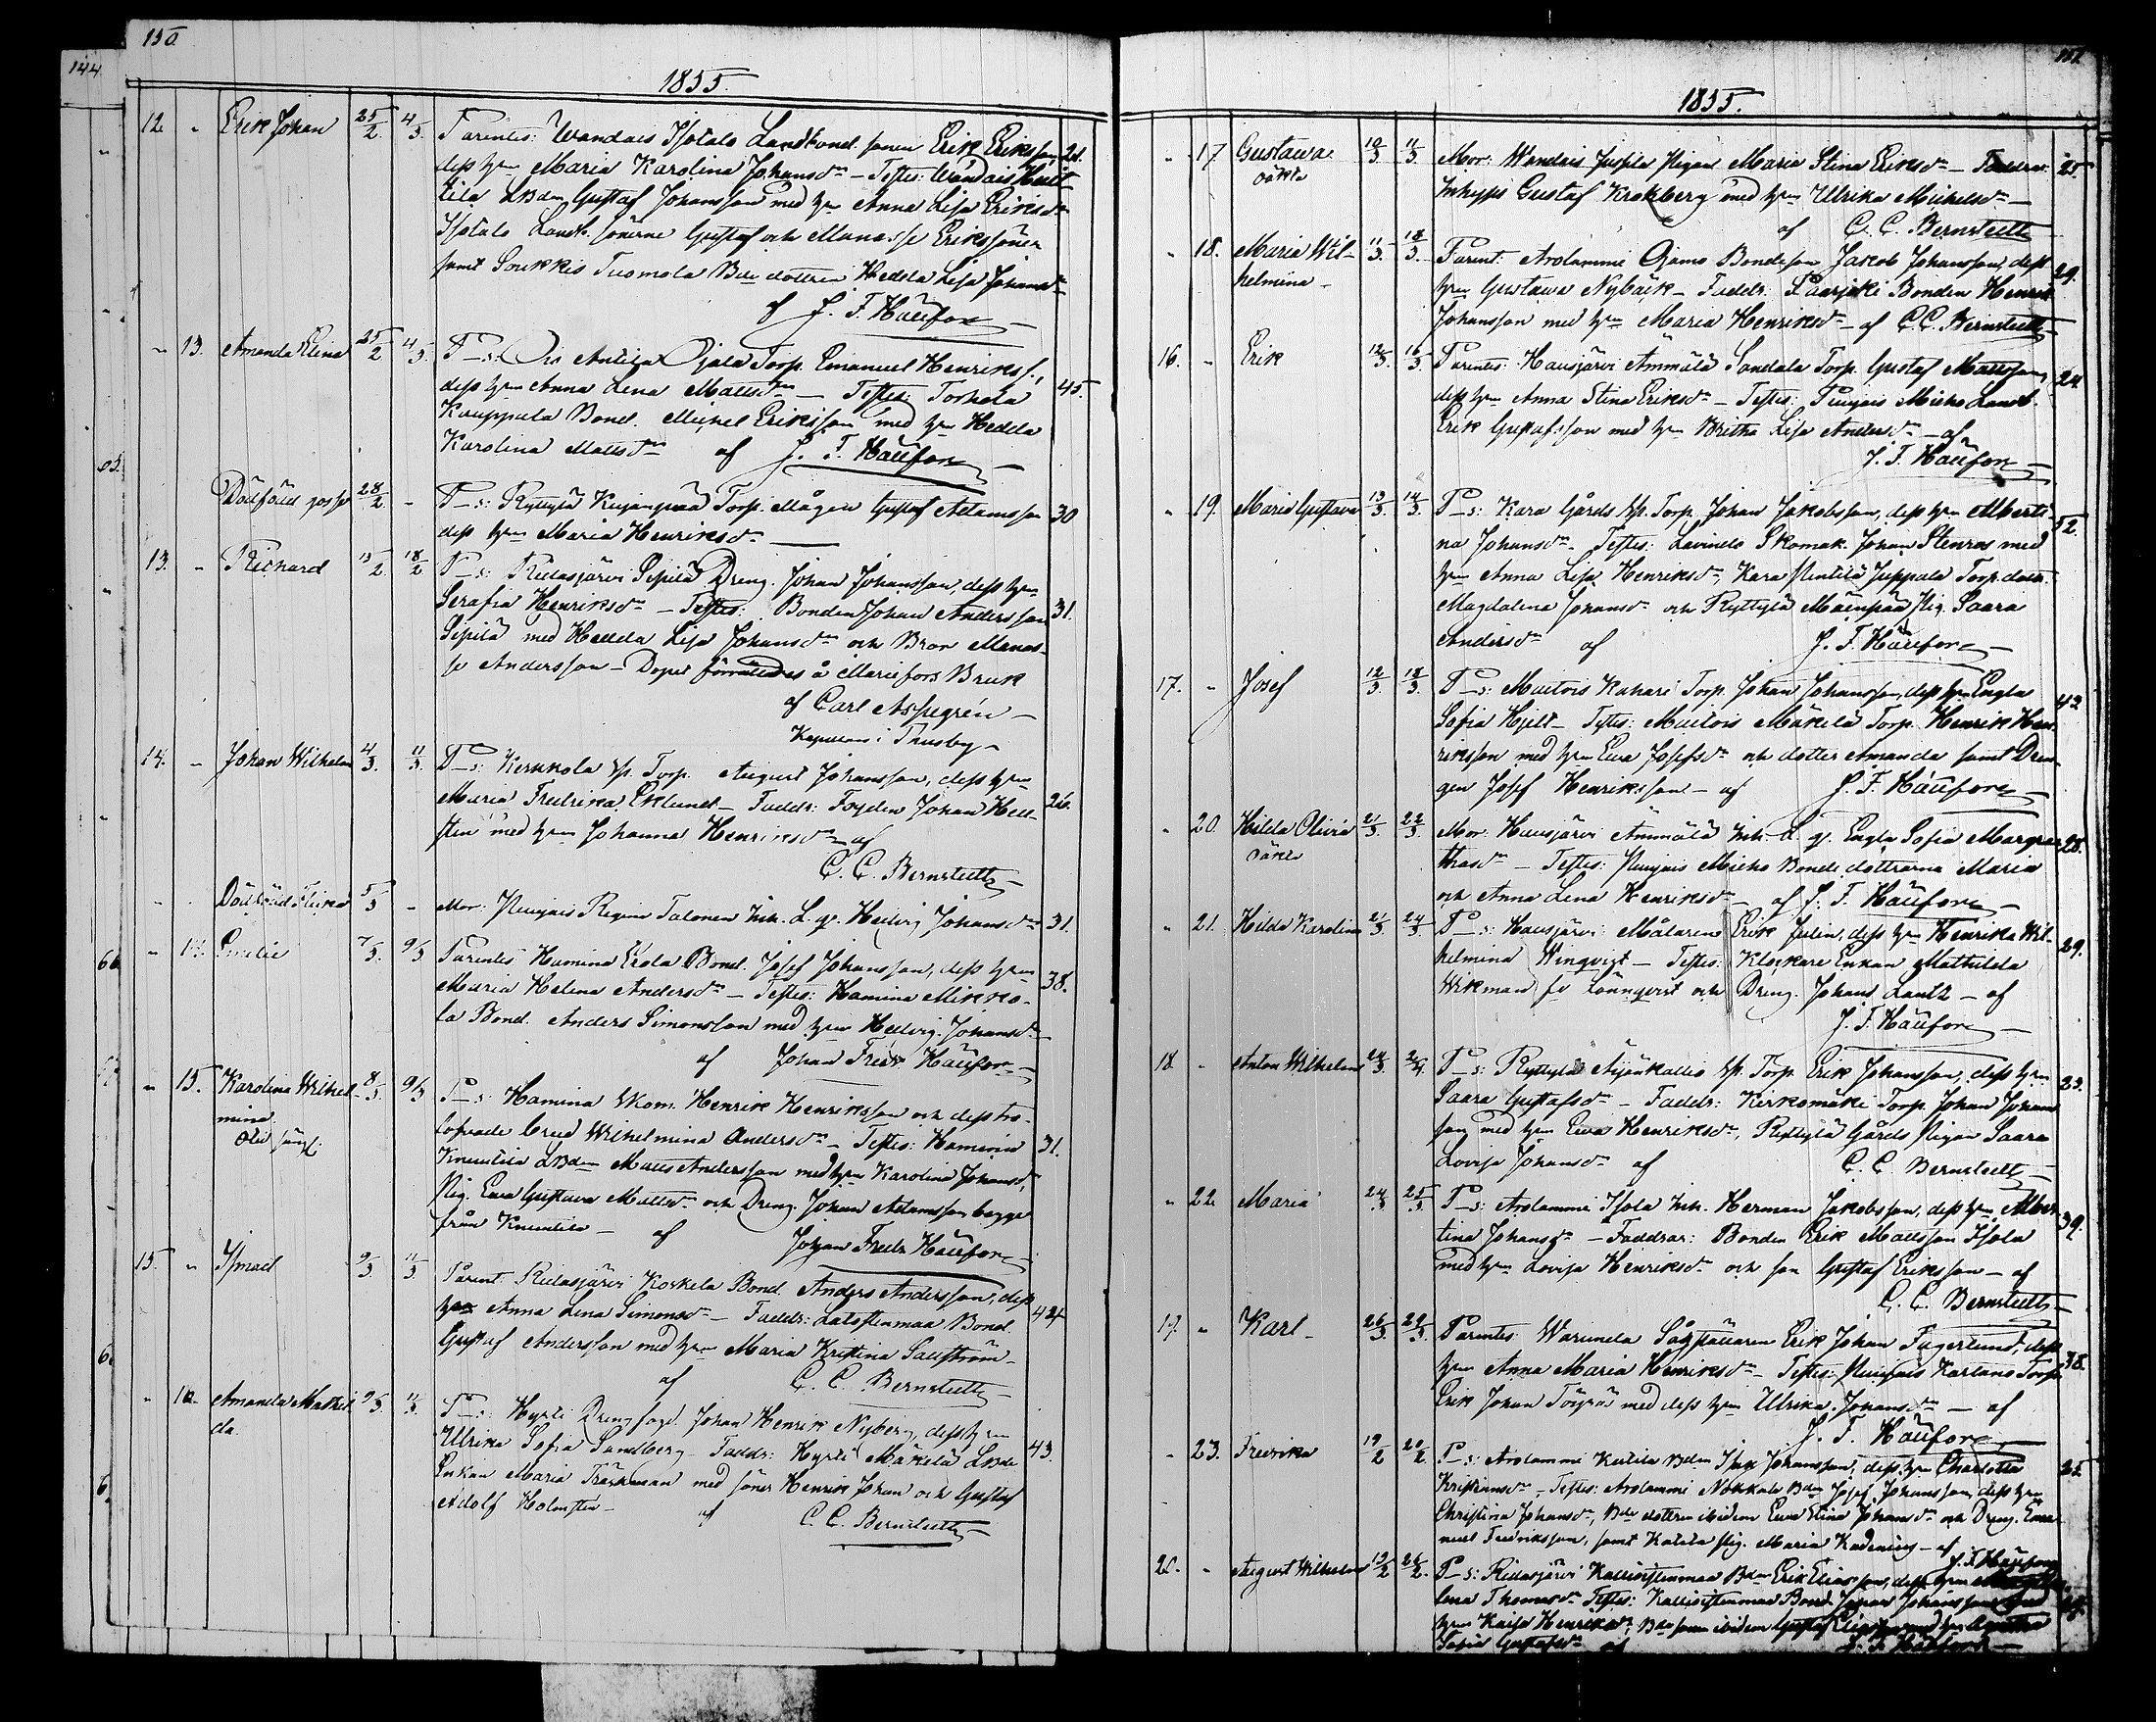 150
144
1855.
12. " Erik Johan 25/2 4/3. Parentes: Wandais Isotalo Landbond. sonen Erik Eriksson, 21.
dess h:u Maria Karolina Johansd:r – Testes: Wandais Hut-
tila LBdn Gustaf Johansson med h:u Anna Lisa Eriksd:r
Isotalo Landb. sönerne Gustaf och Manasse Erikssöner
samt Soukkis Tuomola Bde dottren Hedda Lisa Johansd:r
af J. F. Häufor
" 13. Amanda Elina 25/2 4/3. P–s: Ois Antila Ojala Torp. Emanuel Henrikss.,
dess h:u Anna Lena Mattsd:r – Testes: Torhola 45.
Kauppala Bond. Michel Eriksson med h:u Hedda
Karolina Mattsd:r af J. F. Häufor
65.
Dödfödd gosse 28/2 – P–s: Ryttylä Kujanpää Torp. Mågen Gustaf Adamsson 30
dess h:u Maria Henriksd:r
13. " Richard 15/2. 18/2 P–s: Ridasjärvi Sipilä Dreng. Johan Johansson, dess h:u
Serafia Henriksd:r – Testes: Bonden Johan Andersson 31.
Sipilä med Hedda Lisa Johansd:r och Bror Manas-
se Andersson – Dopet förrättades å Mariefors Bruk
af Carl Aspegrén
Kapellan i Thusby
14. " Johan Wilhelm 4/3. 11/3. P–s: Kerkkola Torp. August Johansson, dess h:u
Maria Fredrika Eklund – Faddr: Fogden Johan Hell- 26.
sten med h:u Johanna Henriksd:r af
C. C. Bernstedt
Dödfödd Flicka 5/3 – Mor: Nuujais Regina Talonen Inh. L. q. Hedvig Johansd:r 31.
66 " 14. Emelie 7/3. 9/3 Parentes Hamina Erola Bond. Josef Johansson, dess h:u
Maria Helena Andersd:r – Testes: Hamina Mikko- 38.
la Bond. Anders Simonsson med h:u Hedvig Johansd:r
af Johan Fredr. Häufor
" 15. Karolina Wilhel- 8/3. 9/3 P–s: Hamina Skom. Henrik Henriksson och dess tro-
mina. lofvade brud Wilhelmina Andersd:r – Testes: Hamina 31.
Knuutila LBdn Matts Andersson med h:u Karolina Johansd:r,
Pig. Eva Gustava Mattsd:r och Dreng. Johan Adamsson begge
från Knuutila – af Johan Fredr. Häufor
15. " Ismael 9/3 11/3. Parent: Ridasjärvi Koskela Bond. Anders Andersson, dess
h:u Anna Lena Simonsd:r – Faddr: Latostenmaa Bond. 42
Gustaf Andersson med h:u Maria Kristina Sallström
af C. C. Bernstedt
" 16. Amanda Mathil- 9/3. 11/3. P–s: Hyrli Dreng Johan Henrik Nyberg, dess h:u
da. Ulrika Sofia Sundberg – Faddr: Hyrli Mäkelä LBde 43.
Enkan Maria Träskman med söner Henrik Johan och Gustaf
Adolf Holmsten – af C. C. Bernstedt
151
1855.
" 17. Gustawa 10/3 11/3 Mor: Wandais Jussila Pigan Maria Stina Eriksd:r – Faddrar: 25.
oäkta Inhyss Gustaf Krokberg med h:u Ulrika Michelsd:r
af C. C. Bernstedt
" 18. Maria Wil- 11/3. 18/3. Parent: Arolammi Ojamo Bondeson Jakob Johansson, dess 29.
helmina – h:u Gustawa Nybäck – Faddr: Paarjoki Bonden Henrik
Johansson med h:u Maria Henriksd:r – af C. C. Bernstedt
16. " Erik 12/3. 16/3. Parentes: Hausjärvi Ämmälä Torp. Gustaf Mattsson, 24.
dess h:u Anna Stina Eriksd:r – Testes: Puujais Micko Landb.
Erik Gustafsson med h:u Britha Lisa Andersd:r – af
J. F. Häufor
" 19. Maria Gustava 13/3. 14/3. P–s: Kara Gårds Torp. Johan Jakobsson, dess h:u Alberti- 52.
na Johansd:r – Testes: Lavinto Skomak. Johan Stenros med
h:u Anna Lisa Henriksd:r, Kara Pentilä Juppala Torp. dottr.
Magdalena Johansd:r och Ryttylä Mäenpää Pig. Saara
Andersd:r af J. F. Häufor
17. " Josef 12/3. 18/3. P–s: Maitois Kahari Torp. Johan Johansson, dess h:u Engla 43.
Sofia Hjelt – Testes: Maitois Mäkelä Torp. Henrik Hen-
riksson med h:u Eva Josefsd:r och dotter Amanda samt Dren-
gen Josef Henriksson – af J. F. Häufor
" 20. Hilda Olivia 21/3. 22/3. Mor: Hausjärvi Ämmälä Inh. L. q. Engla Sofia Margre- 28.
oäkta thasd:r – Testes: Puujais Micko Bonde dottrarna Maria
och Anna Lena Henriksd:r – af J. F. Häufor
" 21. Hilda Karolina 21/3. 24/3. P–s: Hausjärvi Målaren Erik Julin, dess h:u Henrika Wil- 29.
helmina Winqvist – Testes: Klockare Enkan Mathilda
Wikman f. Lönnqvist och Dreng. Johan Lauth – af
J. F. Häufor
18. " Anton Wilhelm 24/3 P–s: Ryttylä Äijänkallio Torp. Erik Johansson, dess h:u 23.
Saara Gustafsd:r – Faddr: Kirkomäki Torp. Johan Johans-
son med h:u Eva Henriksd:r, Ryttylä Gårds Pigan Saara
Lovisa Johansd:r af C. C. Bernstedt
" 22 Maria 24/3 25/3. P–s: Arolammi Isola Inh. Herman Jakobsson, dess h:u Alber- 39.
tina Johansd:r – Faddrar: Bonden Erik Mattsson Isola
med h:u Lovisa Henriksd:r och son Gustaf Eriksson – af
C. C. Bernstedt
19. " Karl – 26/3 29/3. Parentes: Warunda Erik Johan Fagerlund, dess 38.
h:u Anna Maria Henriksd:r – Testes: Puujais Kartano Torp.
Erik Johan Törnros med dess h:u Ulrika Johansd:r – af
J. F. Häufor
" 23. Fredrika 19/2 20/2. P–s: Arolammi Kutila Bdn Isak Johansson, dess h:u Charlotta 25
Kristiansd:r – Testes: Arolammi Nokkala Bdn Josef Johansson, dess h:u
Christina Johansd:r, Bde dottren ibidem Eva Stina Johansd:r och Dreng. Ema-
nuel Fredriksson, samt Kutila Pig. Maria – af J. F. Häufor
20. " August Wilhelm 19/2 26/2. P–s: Ridasjärvi Kallioistenmaa Bdn Erik Eliasson, dess h:u
lena Thomasd:r Testes: Kallioistenmaa Bond. Johan Johansson med
h:u Kaisa Henriksd:r, Bde sonen ibidem Gustaf
Sofia Gustafsd:r af J. F. Häufor